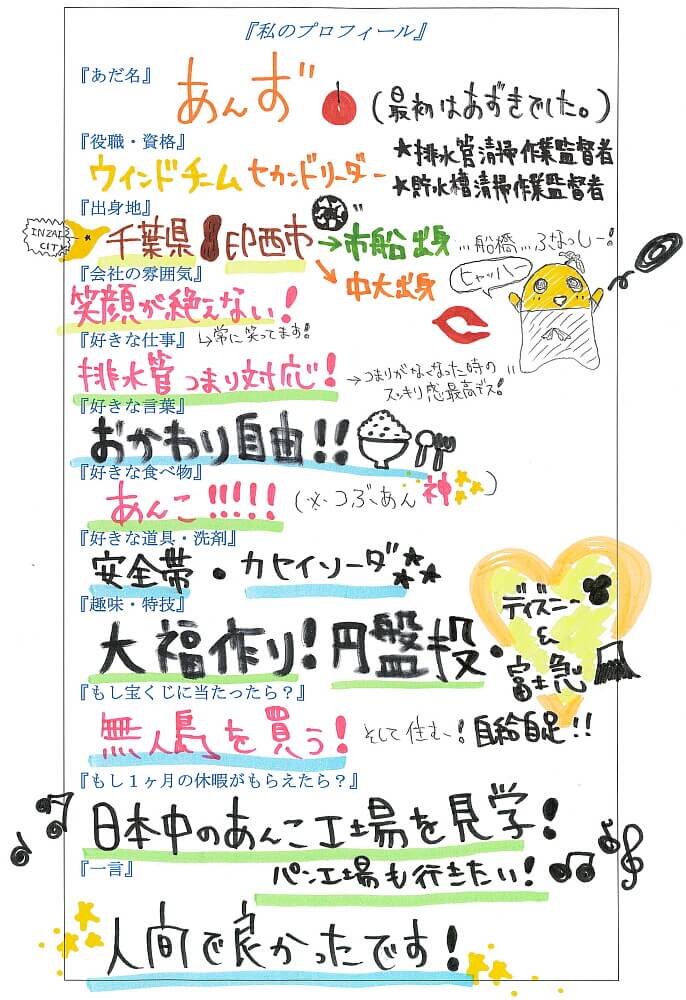 『私のプロフィール』
『あだ名』
あんず (最初はあずきでした。)
『役職・資格』
ウィンドチーム セカンドリーダー
★排水管清掃作業監督者
★貯水槽清掃作業監督者
『出身地』
INZAI CITY
千葉県 印西市 →市船出身 …船橋…ふなっしー!
ヒャッハー
→中大出身
『会社の雰囲気』
笑顔が絶えない!
↳常に笑ってます!
『好きな仕事』
排水管つまり対応! →つまりがなくなった時の
スッキリ感最高デス!
『好きな言葉』
おかわり自由!!
『好きな食べ物』
あんこ!!!!! (※つぶあん神)
『好きな道具・洗剤』
安全帯・カセイソーダ
『趣味・特技』
大福作り!円盤投・
ディズニー
&
富士急
『もし宝くじに当たったら?』
無人島を買う! そして住む!自給自足!!
『もし1ヶ月の休暇がもらえたら?』
日本中のあんこ工場を見学!
パン工場も行きたい!
『一言』
人間で良かったです!